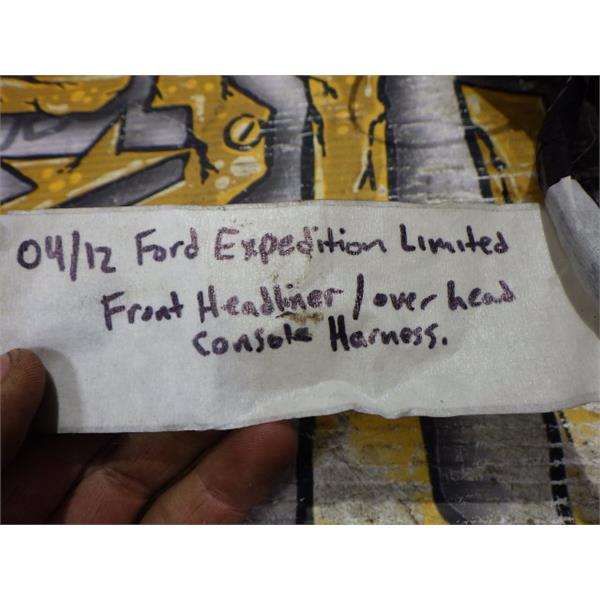 04/12 Ford Expedition Limited
Front Headliner / over head
Console Harness.